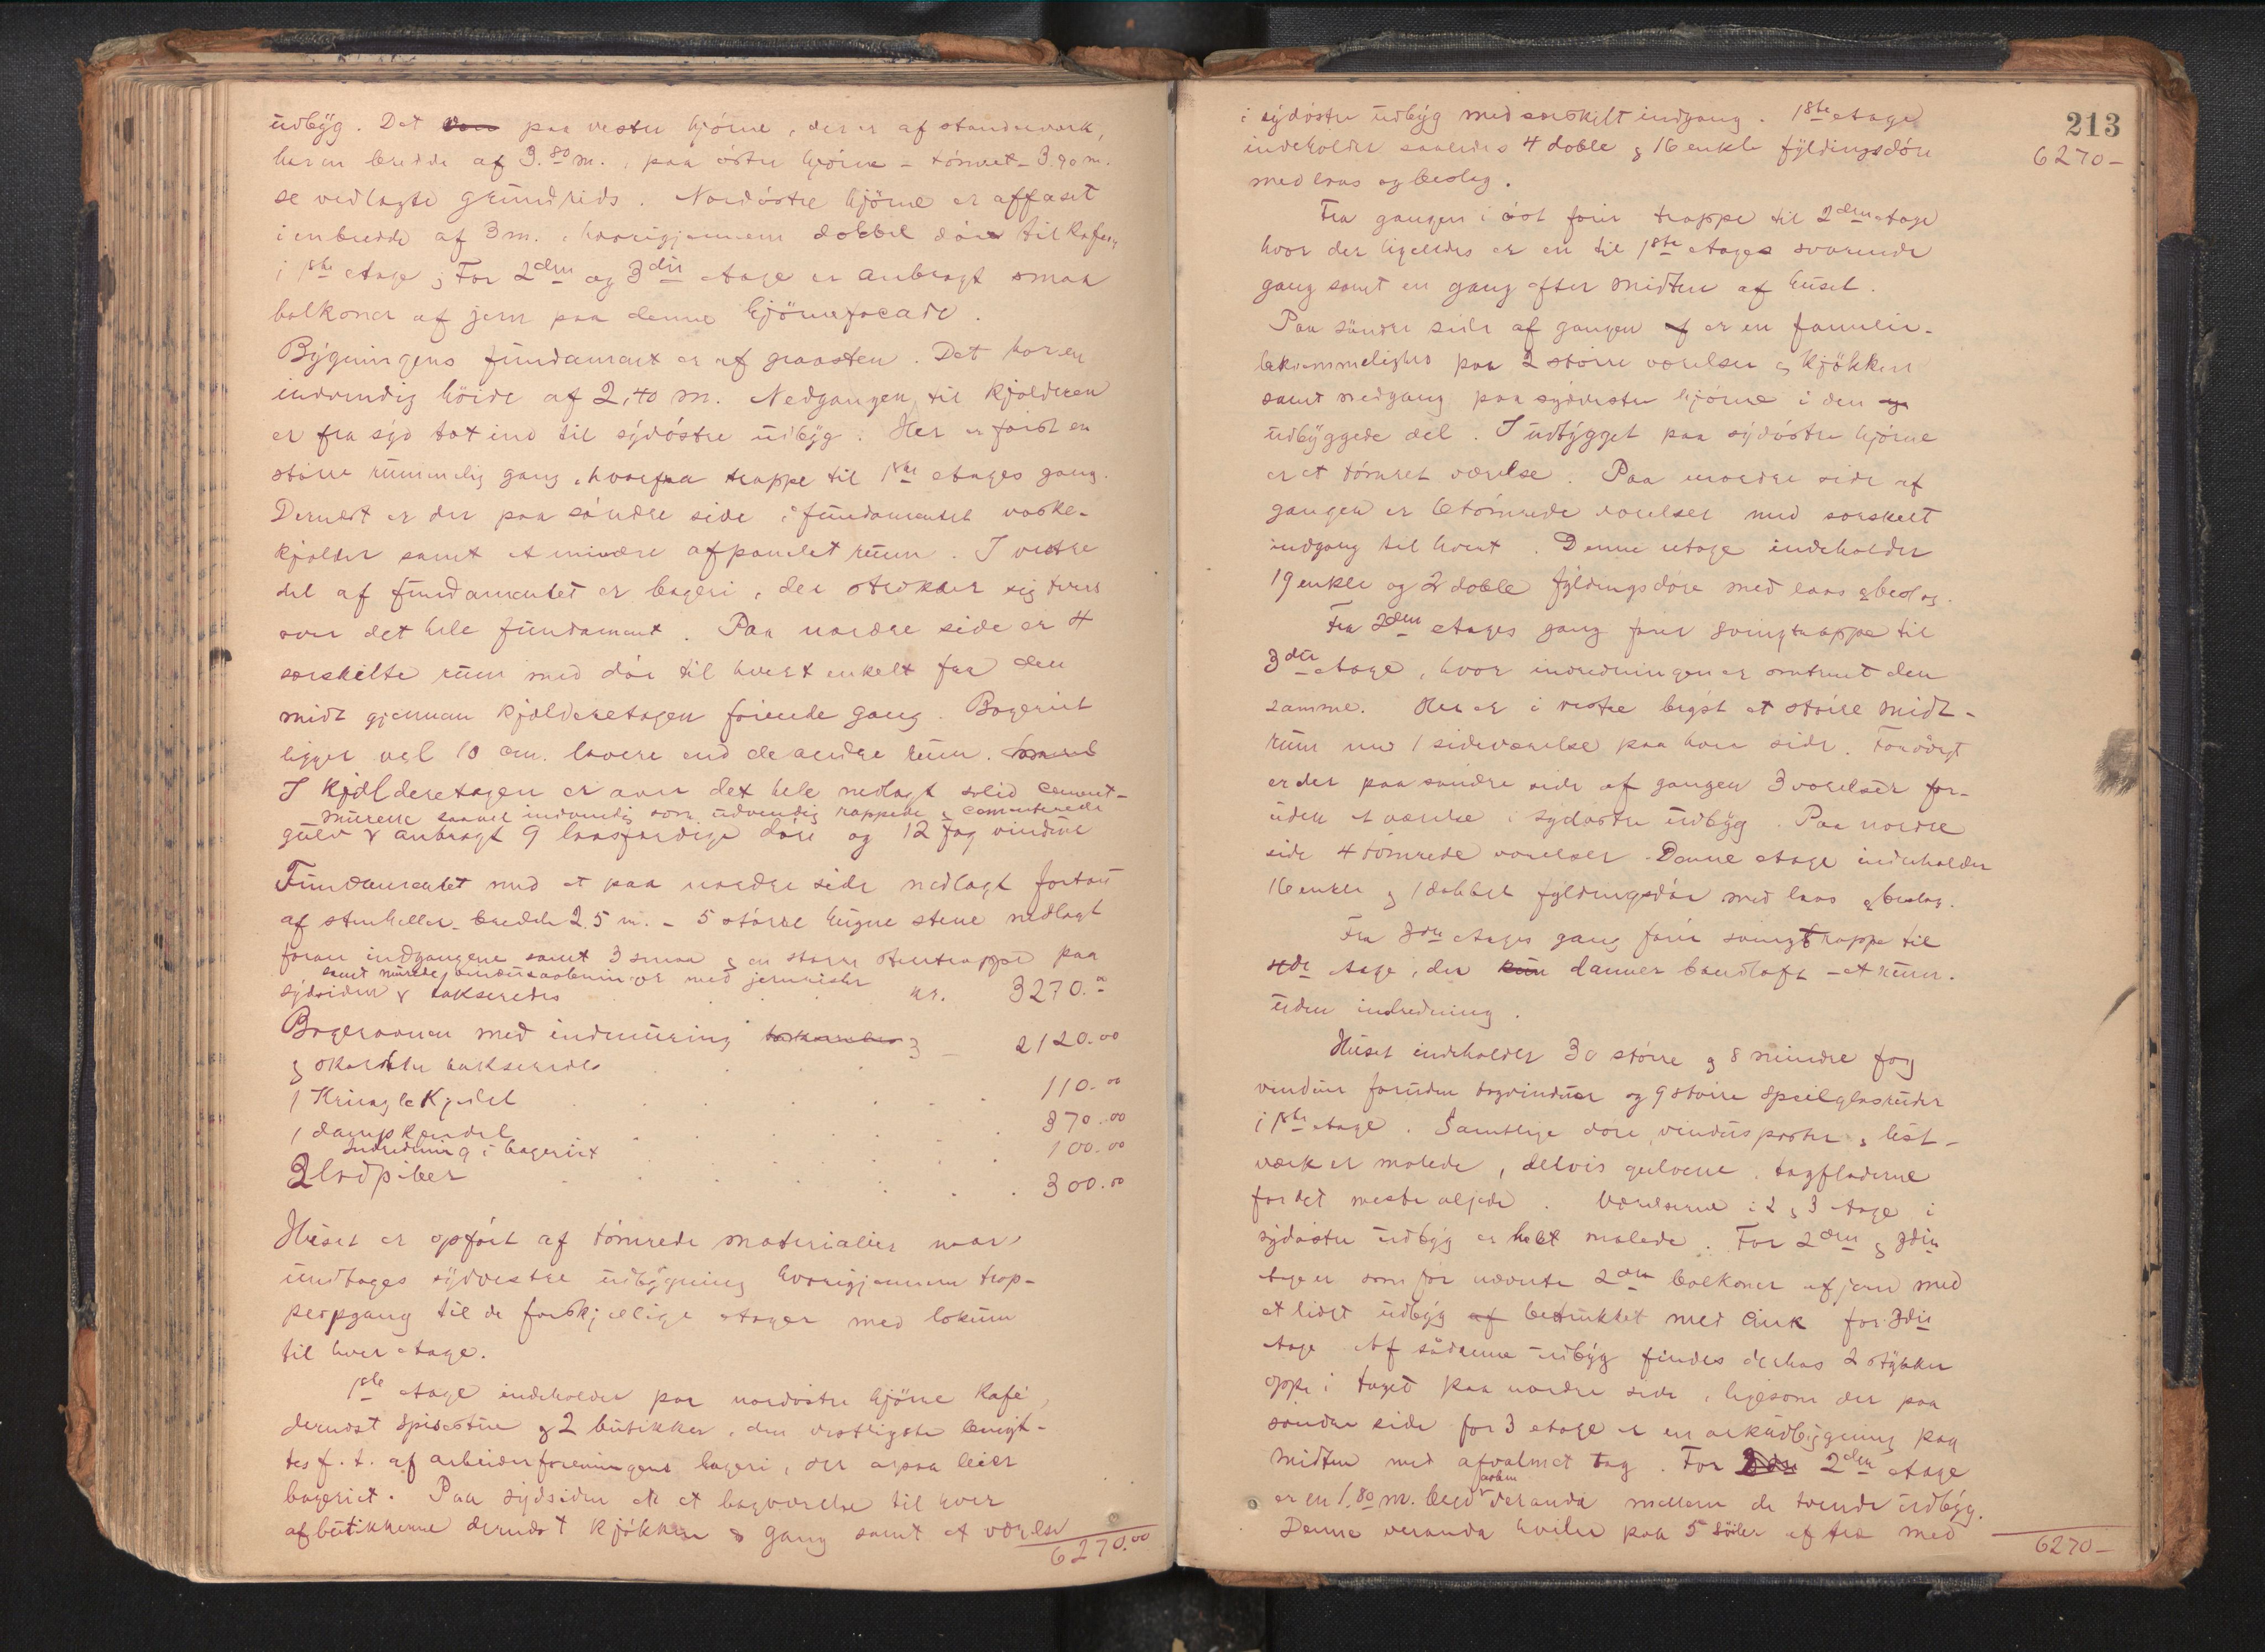 udbyg. Det paa vestre hjörne, der er af standerverk,
har en bredde af 3.80 m., paa östre hjörne – tömret – 3.90 m.
se vedlagte grundrids. Nordöstre hjörne er affaset
i en bredde af 3 m., hvorigjennem dobbel dör til Kafeen
i 1ste etage; For 2den og 3die etage er anbragt smaa
balkoner af jern paa denne hjörnefacade.
Bygningens fundament er af graasten. Det har en
indvendig höide af 2,40 m. Nedgangen til kjælderen
er fra syd tæt ind til sydöstre udbyg. Her er först en
större rummelig gang, hvorfra trappe til 1ste etages gang.
Dernæst er der paa söndre side i fundamentet vaske-
kjælder samt et mindre afpanelet rum. I vestre
del af fundamentet er bageri, der strækker sig tvers
over det hele fundament. Paa nordre side er 4
særskilte rum med dör til hvert enkelt fra den
midt gjennem kjælderetagen förende gang. Bageriet
ligger vel 10 cm. lavere end de andre rum.
I kjælderetagen er over det hele nedlagt solid cement-
murene saavel indvendig som udvendig rappede & cementerede
gulv & anbragt 9 laasfærdige döre og 12 fag vinduer
Fundamentet med et paa nordre side nedlagt fortau
af stenheller – bredde 2.5 m. – 5 större hugne stene nedlagt
foran indgangene samt 3 smaa & en större stentrappe paa
samt murede med jernrister
sydsiden & takseredes kr. 3270.00
Bagerovnen med indmuring 3 – 2120.00
& skorsten takseredes
1 Kringlekjedel 110.00
1 dampkjedel 370.00
Indredning i bageriet 100.00
3 lodpiber 300.00
Huset er opfört af tömrede materialier naar
undtages sydvestre udbygning hvorigjennem trap-
peopgang til de forskjellige etager med lokum
til hver etage.
1ste etage indeholder paa nordöstre hjörne Kafé,
dernæst spisestue & 2 butikker, den vestligste benyt-
tes f. t. af arbeiderforeningens bageri, der ogsaa leier
bageriet. Paa sydsiden er et bagværelse til hver
af butikkerne dernæst kjökken & gang samt et værelse
6270.00
213
i sydöstre udbyg med særskilt indgang. 1ste etage
indeholder saaledes 4 doble & 16 enkle fyldingsdöre 6270 –
med laas og beslag.
Fra gangen i öst förer trappe til 2den etage
hvor der ligeledes er en til 1ste etages svarende
gang samt en gang efter midten af huset.
Paa söndre side af gangen er en familie-
bekvemmelighed paa 2 större værelser & kjökken
samt nedgang paa sydvestre hjörne i den
udbyggede del. I udbygget paa sydöstre hjörne
er et tömret værelse. Paa nordre side af
gangen er 6 tömrede værelser med særskilt
indgang til hvert. Denne etage indeholder
19 enkle og 2 doble fyldingsdöre med laas & beslag.
Fra 2den etages gang förer svingtrappe til
3die etage, hvor indredningen er omtrent den
samme. Her er i vestre bygst et större midt-
rum med 1 sideværelse paa hver side. Forövrigt
er der paa söndre side af gangen 3 værelser for-
uden et værelse i sydöstre udbyg. Paa nordre
side 4 tömrede værelser. Denne etage indeholder
16 enkle & 1 dobbel fyldingsdör med laas & beslag.
Fra 3die etages gang förer svingtrappe til
4de etage, der danner bandloft – et rum.
uden indredning.
Huset indeholder 30 större & 8 mindre fag
vinduer foruden tagvinduer og 9 större speilglasruder
i 1ste etage. Samtlige döre, vinduesposter & list-
værk er malede, delvis gulvene, tagfladerne
for det meste oljede. Værelserne i 2 & 3 etage i
sydöstre udbyg er helt malede. For 2den & 3die
etage er som för nævnte 2den balkoner af jern med
et lidet udbyg betrukket med Zink for 3die
etage. Af saadanne udbyg findes derhos 2 stykker
oppe i taget paa nordre side, ligesom der paa
söndre side for 3 etage er en arkudbygning paa
midten med afvalmet tag. For 2den etage
er en 1.80 m. bred aaben veranda mellem de tvende udbyg.
Denne veranda hviler paa 5 söiler af træ med
6270 –